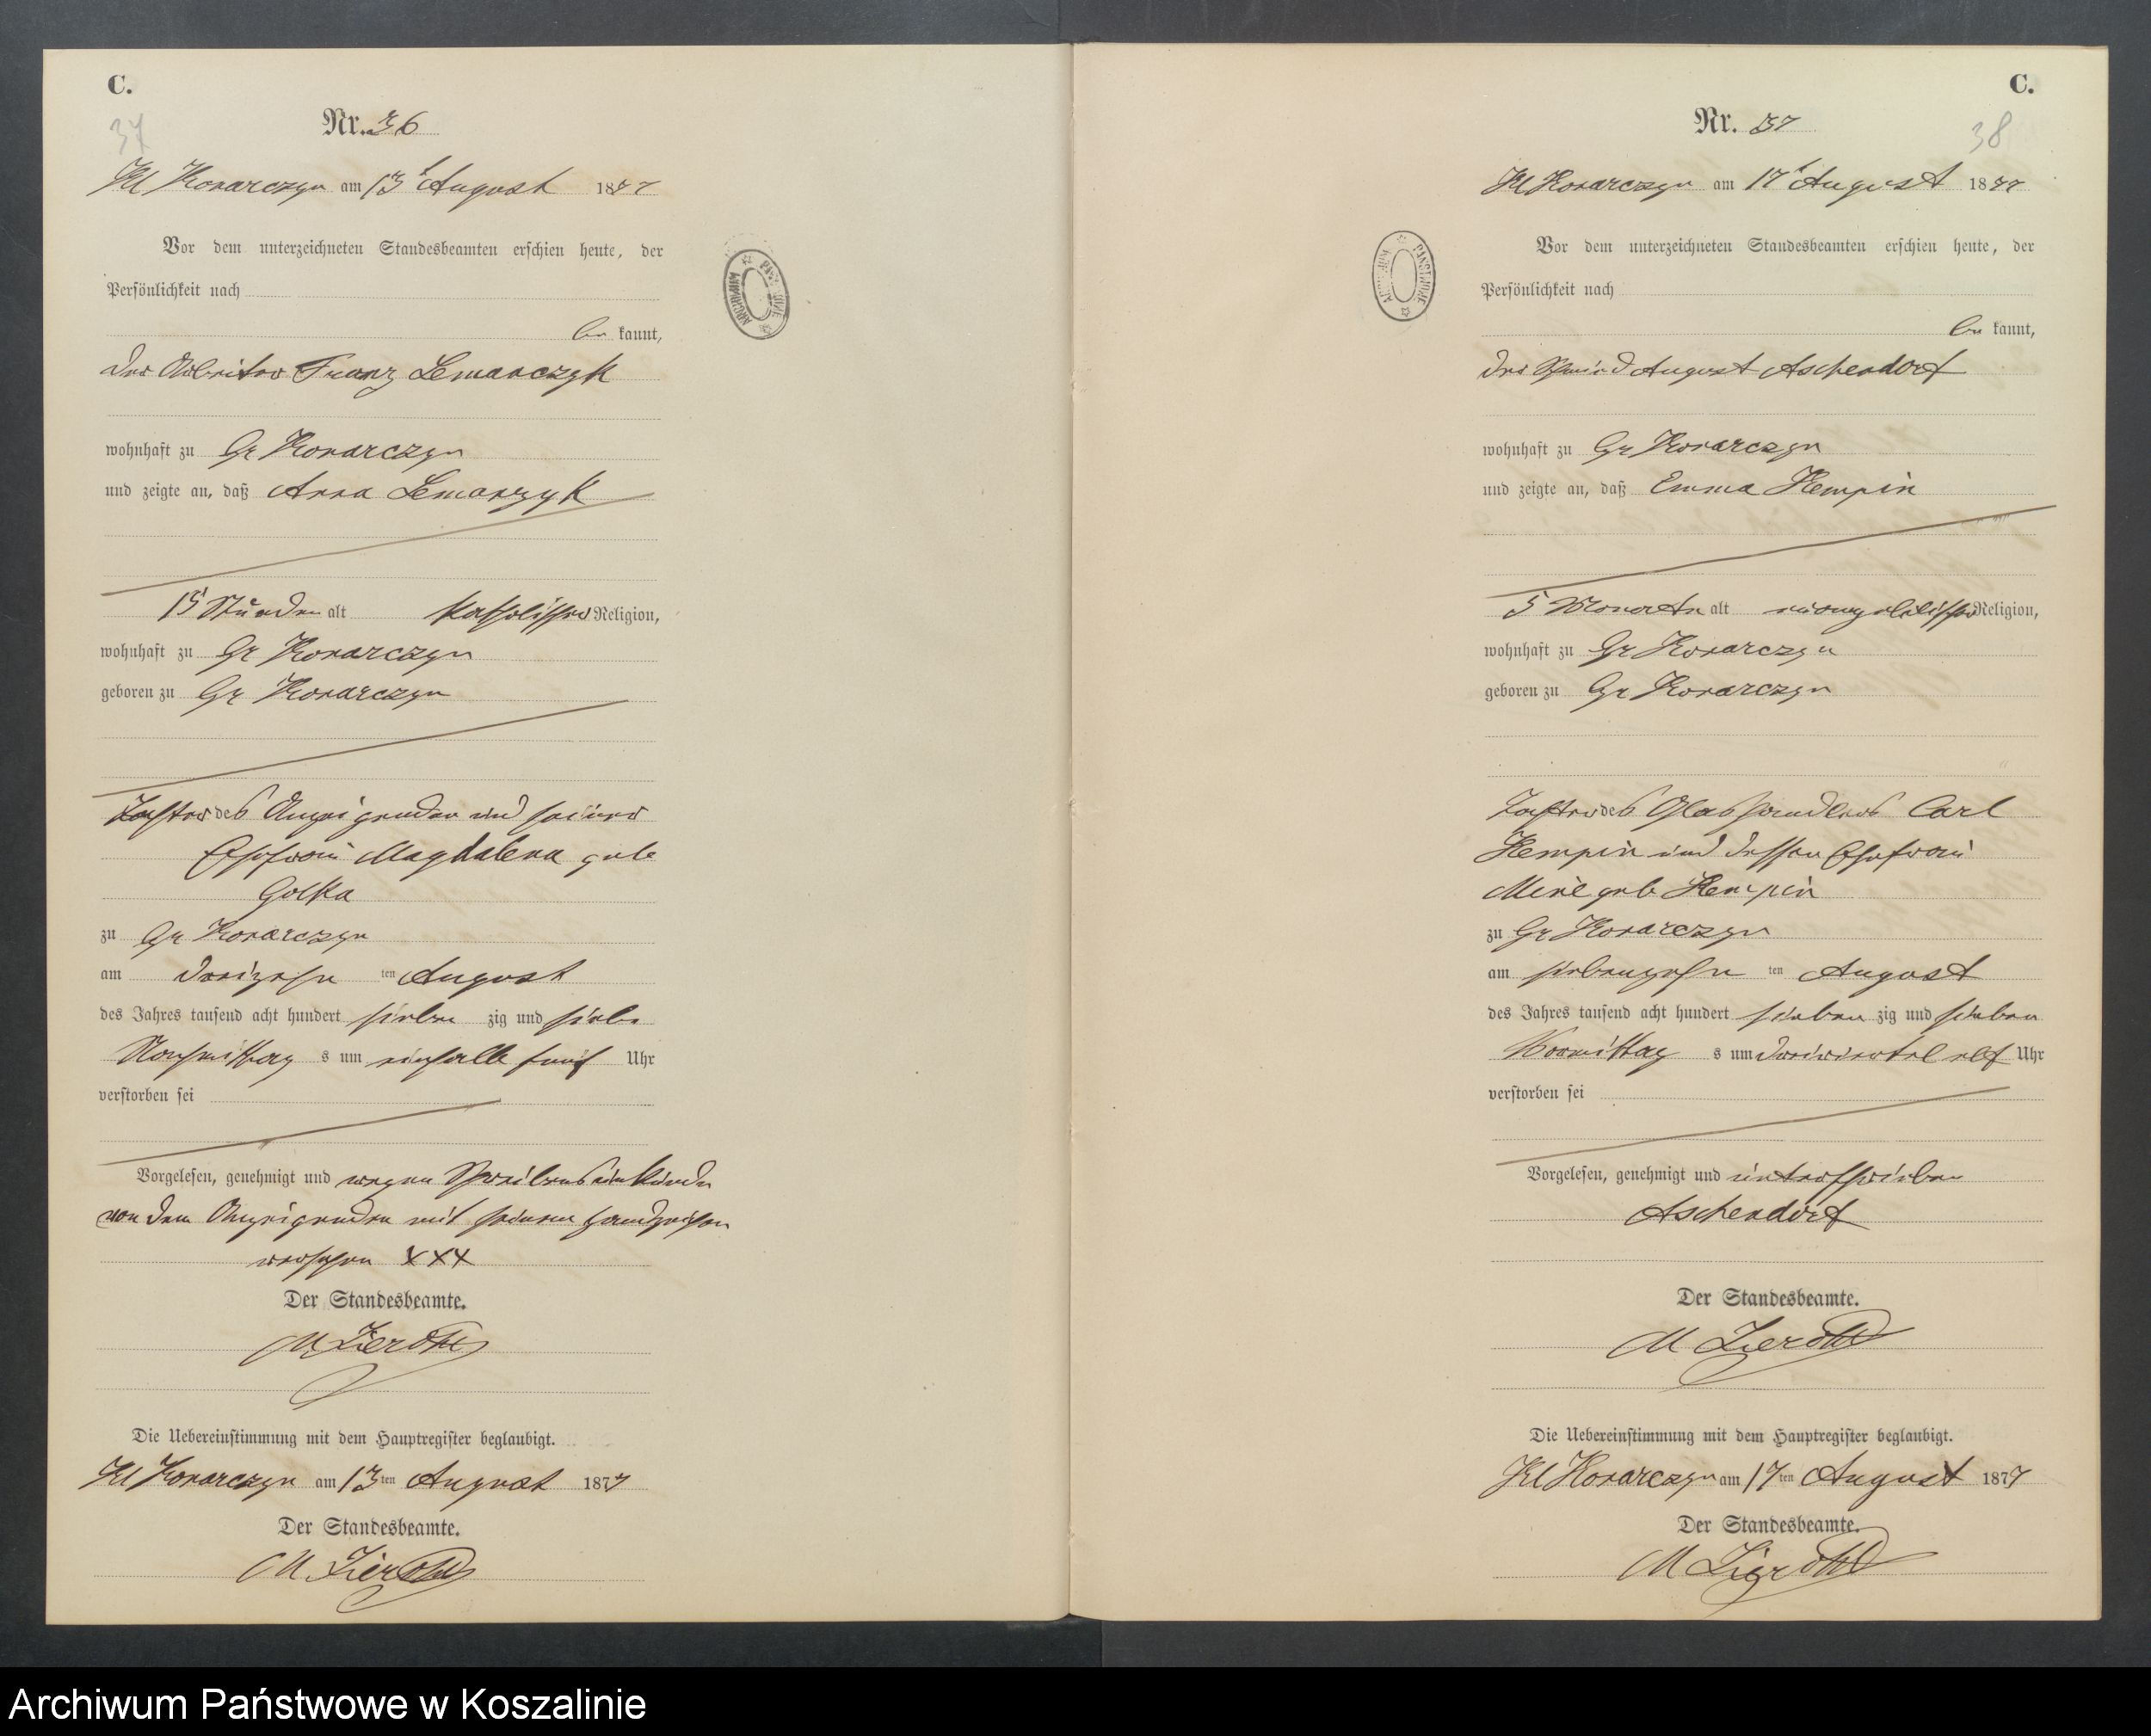 C.
37
Nr. 36
Kl Konarczyn am 13t August 1877
Vor dem unterzeichneten Standesbeamten erschien heute, der
Persönlichkeit nach
be kannt,
der Arbeiter Franz Lemanczyk
wohnhaft zu Gr Konarczyn
und zeigte an, daß Anna Lemanzyk
15 Stunden alt katholischer Religion,
wohnhaft zu Gr Konarczyn
geboren zu Gr Konarczyn
Tochter des Anzeigenden und seiner
Ehefrau Magdalena geb
Golka
zu Gr Konarczyn
am dreizehn ten August
des Jahres tausend acht hundert sieben zig und sieben
Nachmittag s um einhalb fünf Uhr
verstorben sei
Vorgelesen, genehmigt und wegen Schreibensunkunde
von dem Anzeigenden mit seinem Handzeichen
versehen XXX
Der Standesbeamte.
M Zieroth
Die Uebereinstimmung mit dem Hauptregister beglaubigt.
Kl Konarczyn am 13 ten August 1877
Der Standesbeamte.
M. Zieroth
C.
38
Nr. 37
Kl Konarczyn am 17t August 1877
Vor dem unterzeichneten Standesbeamten erschien heute, der
Persönlichkeit nach
be kannt,
der Schmied August Aschendorf
wohnhaft zu Gr Konarczyn
und zeigte an, daß Emma Hempin
5 Monate alt evangelischer Religion,
wohnhaft zu Gr Konarczyn
geboren zu Gr Konarczyn
Tochter des Glashändlers Carl
Hempin und dessen Ehefrau
geb Hempin
zu Gr Konarczyn
am siebenzehn ten August
des Jahres tausend acht hundert sieben zig und sieben
Vormittag s um dreiviertel elf Uhr
verstorben sei
Vorgelesen, genehmigt und unterschrieben
Aschendorf
Der Standesbeamte.
M Zieroth
Die Uebereinstimmung mit dem Hauptregister beglaubigt.
Kl Konarczyn am 17 ten August 1877
Der Standesbeamte.
M Zieroth
Archiwum Państwowe w Koszalinie